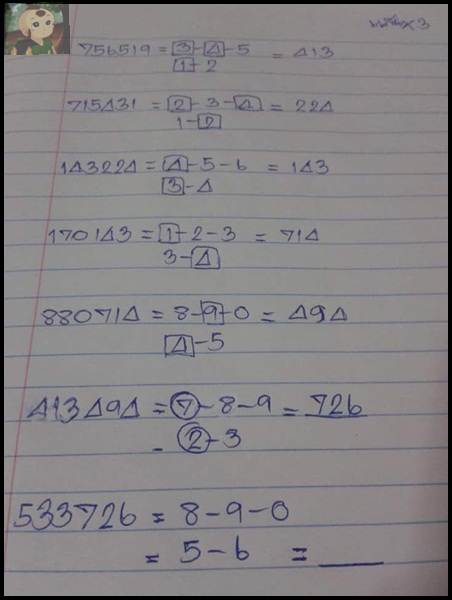 x3
756519 = 3-4-5 = 413
1-2
715431 = 2-3-4 = 224
1-2
143224 = 4-5-6 = 143
3-4
170143 = 1-2-3 = 714
3-4
880714 = 8-9-0 = 494
4-5
413494 = 7-8-9 = 726
- 2-3
533726 = 8-9-0
= 5-6 = ____